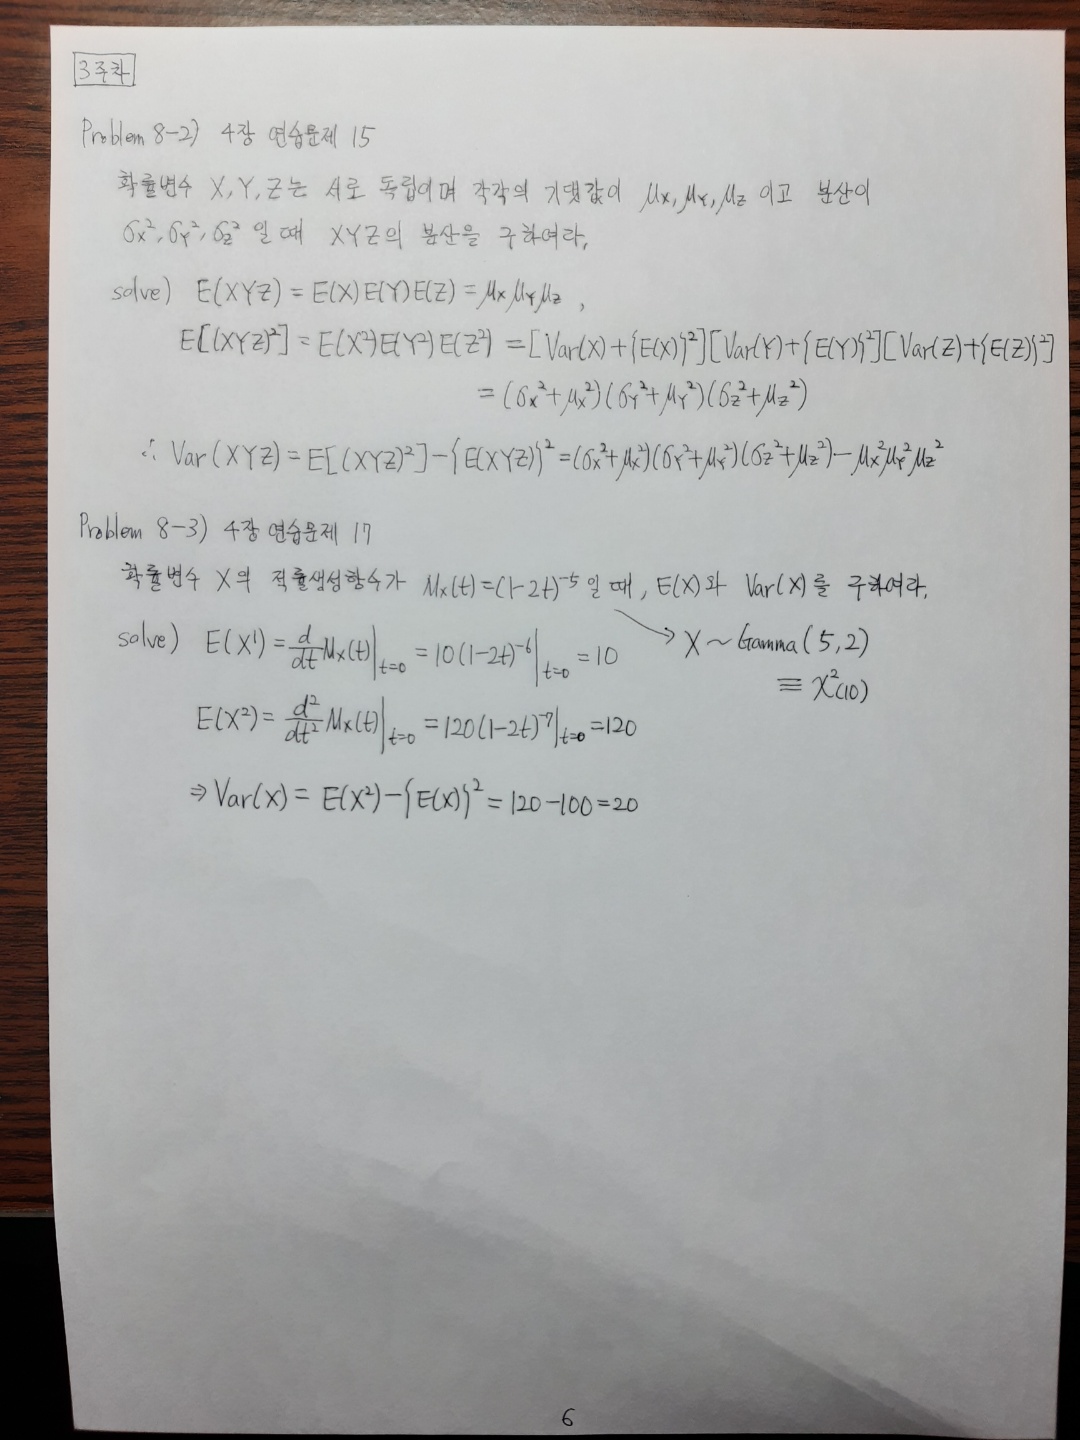 3주차
Problem 8-2) 4장 연습문제 15
확률변수 X, Y, Z는 서로 독립이며 각각의 기댓값이 μx, μY, μz 이고 분산이
σx², σY², σz² 일 때 XYZ의 분산을 구하여라.
solve) E(XYZ) = E(X)E(Y)E(Z) = μxμYμz ,
E[(XYZ)²] = E(X²)E(Y²)E(Z²) = [Var(X)+{E(X)}²][Var(Y)+{E(Y)}²][Var(Z)+{E(Z)}²]
= (σx²+μx²)(σY²+μY²)(σz²+μz²)
∴ Var(XYZ) = E[(XYZ)²]-{E(XYZ)}² = (σx²+μx²)(σY²+μY²)(σz²+μz²) - μx²μY²μz²
Problem 8-3) 4장 연습문제 17
확률변수 X의 적률생성함수가 Mx(t) = (1-2t)⁻⁵ 일 때, E(X)와 Var(X)를 구하여라.
solve) E(X¹) = d/dt Mx(t)|t=0 = 10(1-2t)⁻⁶|t=0 = 10 → X ~ Gamma(5, 2)
≡ χ²(10)
E(X²) = d²/dt² Mx(t)|t=0 = 120(1-2t)⁻⁷|t=0 = 120
⇒ Var(X) = E(X²)-{E(X)}² = 120-100 = 20
6